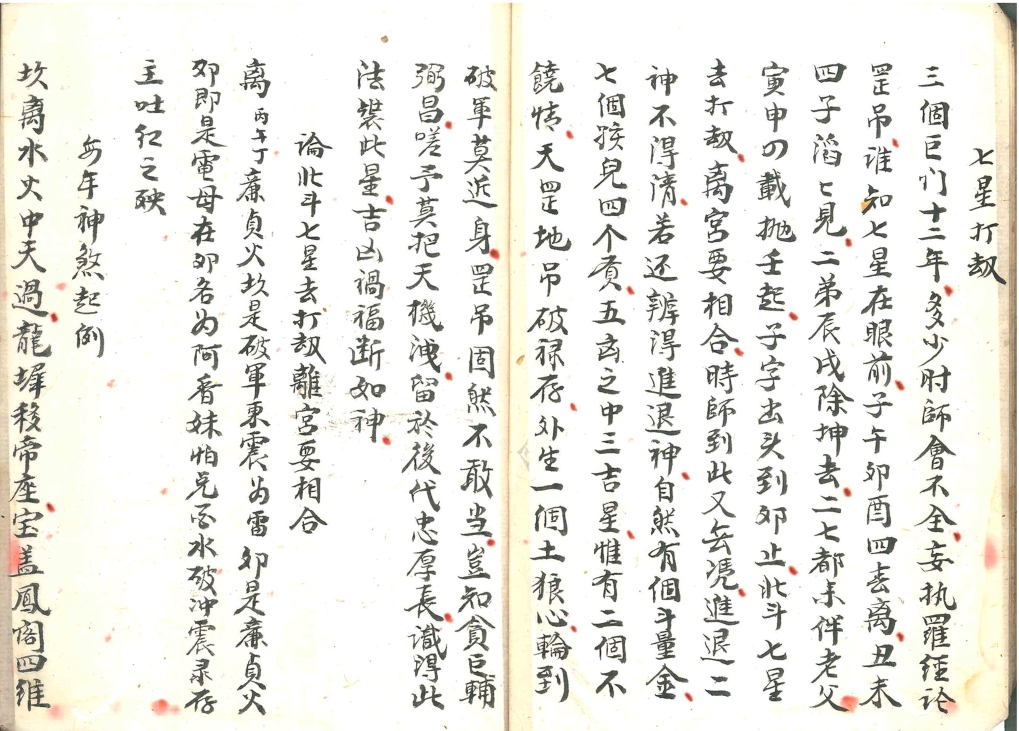 七星打刼
三個巨门十二年多少时師會不全妄执羅經论
罡吊谁知七星在眼前子午卯酉四去离丑未
四子滔七見二弟辰戌除坤去二七都未伴老父
寅申四載拋壬起子字出头到卯止北斗七星
去打刼离宮要相合時師到此又无凭進退二
神不淂清若还辨淂進退神自然有個斗量金
七個孩兒四个贪五凶之中三吉星惟有二個不
饒情天罡地吊破禄存外生一個土狼心輪到
破軍莫近身罡吊固然不敢当豈知貪巨輔
弼昌嗟予莫把天機洩留於後代忠厚長識淂此
法裝此星吉凶禍福断如神
論北斗七星去打刼離宮要相合
离丙午丁廉貞火坎是破軍東震为雷卯是廉貞火
卯即是電母在卯名为阿香妹怕兑酉水破冲震录存
主吐红之殃
安年神煞起例
坎离水火中天過龍墀移帝座宝盖鳳阁四维